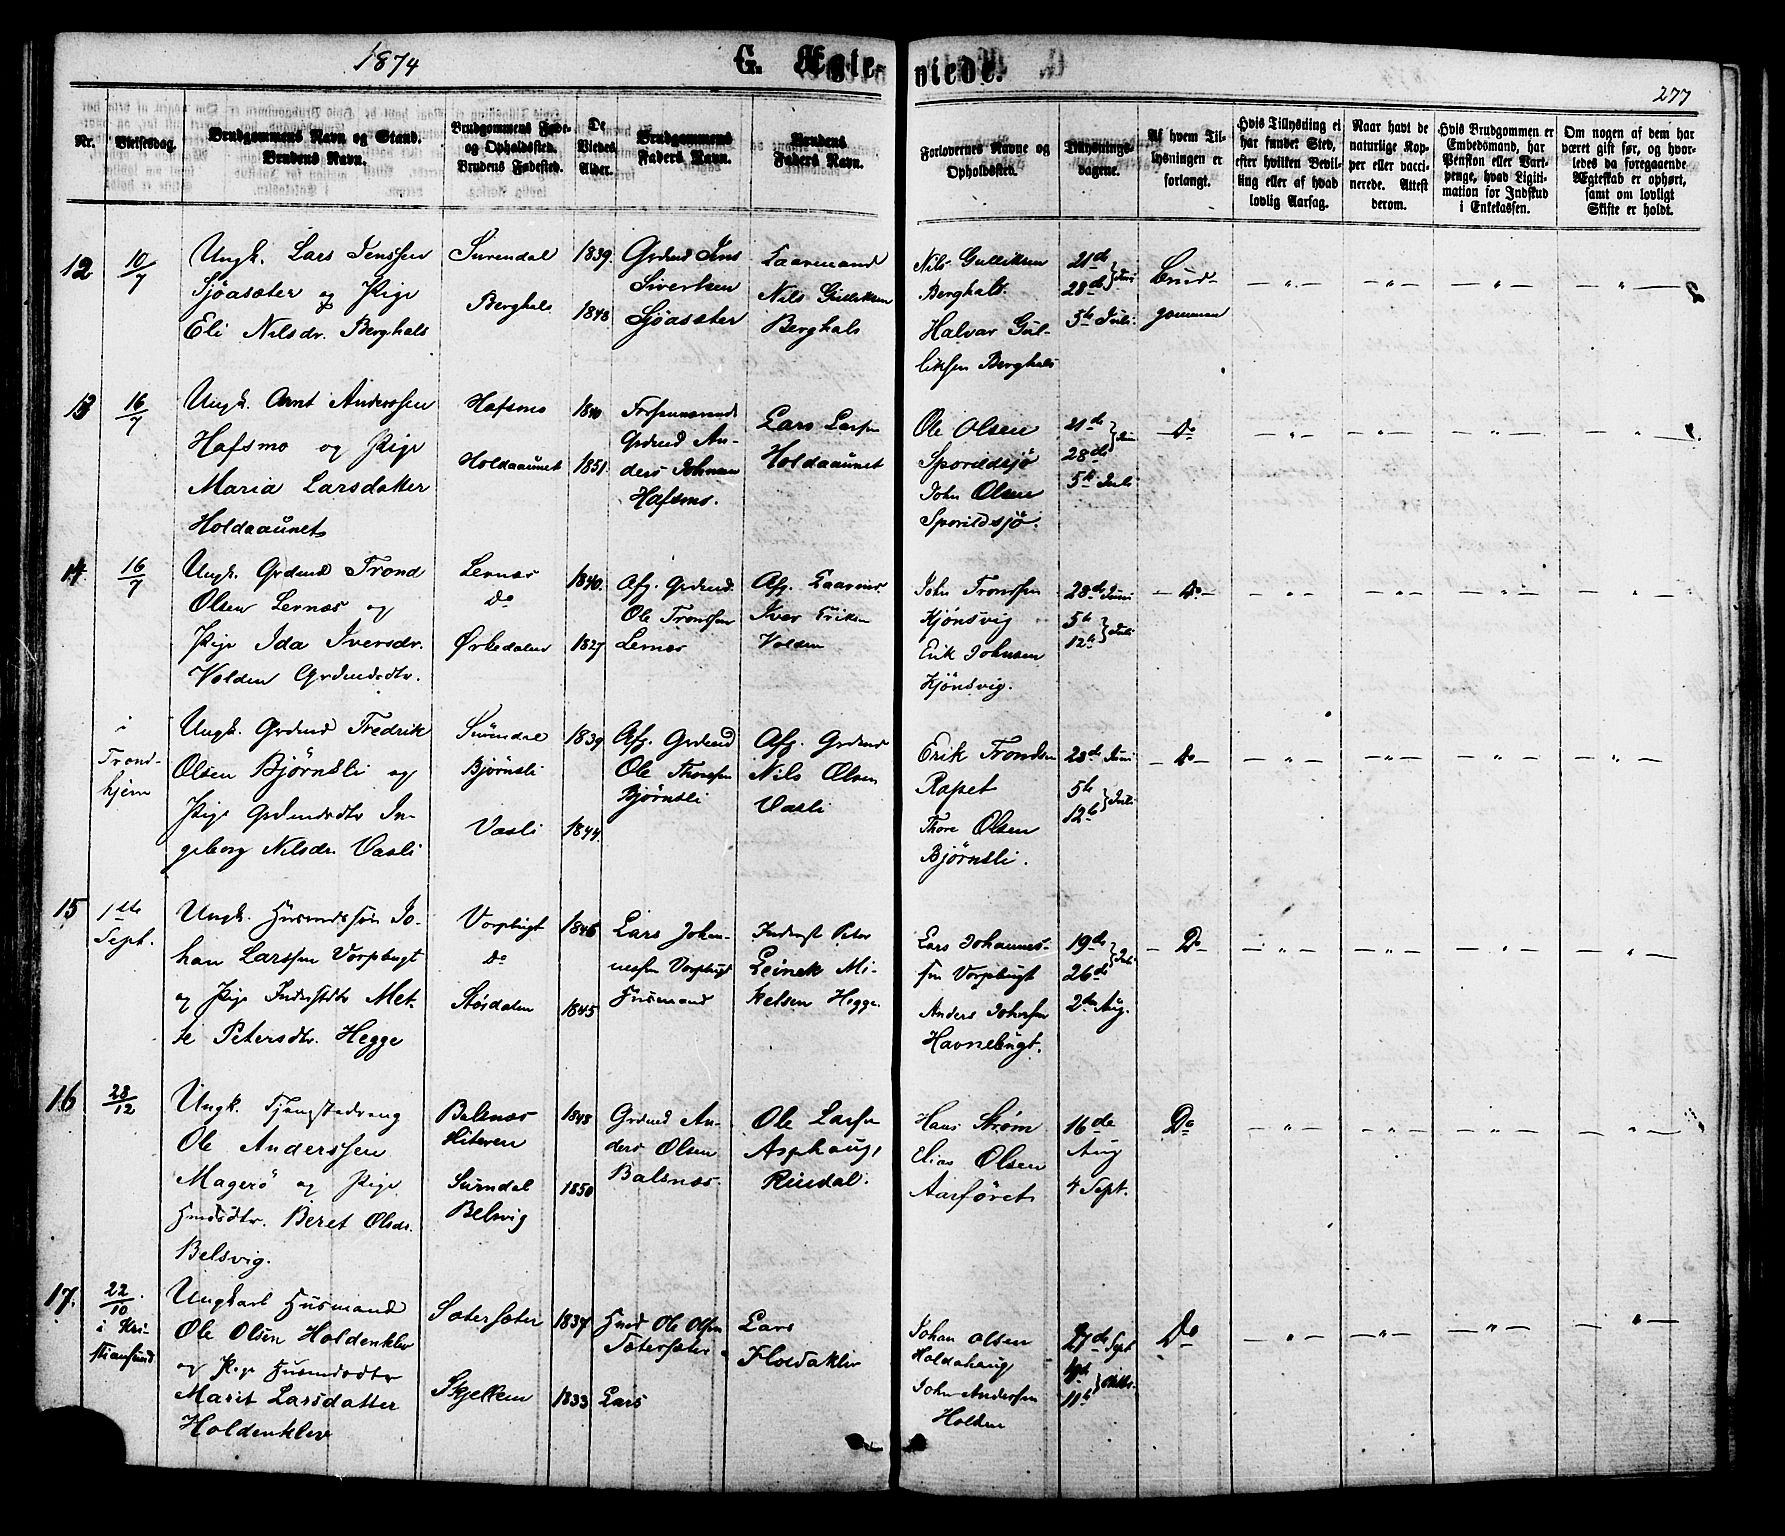 1874
G. Ægte-
viede.
277
Nr.
Vielsesdag.
Brudgommens Navn og Stand.
Brudens Navn.
Brudgommens Føde-
og Opholdssted.
Brudens Fødested.
De
Viedes
Alder.
Brudgommens
Faders Navn.
Brudens
Faders Navn.
Forlovernes Navne og
Opholdssted.
Tillysnings-
dagene.
Af hvem Til-
lysningen er
forlangt.
Hvis Tillysning ei
har fundet Sted,
efter hvilken Bevil-
ling eller af hvad
lovlig Aarsag.
Naar havt de
naturlige Kop-
per eller vacci-
nerede. Attest
derom.
Hvis Brudgommen er
Embedsmand, har
Pension eller Vart-
penge, hvad Ligiti-
mation for Indskud
i Enkekassen.
Om nogen af dem har
været gift før, og hvor-
ledes da foregaaende
Ægteskab er ophørt,
samt om lovligt
Skifte er holdt.
12
10/7
Ungk. Lars Jenssen
Sjøasæter og Pige
Eli Nilsdr. Berghals
Surendal
Berghals
1839.
1848
Grdmd Jens
Sivertsen
Sjøasæter
Laarmand
Nils Gulliksen
Berghals
Nils Gulliksen
Berghals.
Halvar Gul-
liksen Berghals
21de
28de } Juni
5te Juli.
Brud-
gommen
— " —
— " —
— " —
— " —
13
16/7
Ungk. Arnt Anderssen
Hafsmo og Pige
Maria Larsdatter
Holdaaunet
Hafsmo
Holdaaunet
1840
1851.
Grdmd An-
ders Johnsen
Hafsmo.
Lars Larsen
Holdaaunet
Ole Olsen
Sporildsjø
John Olsen
Sporildsjø.
21de
28de } Juni
5te Juli
— Do —
— " —
— " —
— " —
— " —
14
16/7
Ungk. Grdmd Trond
Olsen Lernæs og
Pige Ida Iversdr.
Volden Grdmdsdtr.
Lernæs
Do
Ørkedalen
1840.
1827
Afg. Grdmd.
Ole Tronssen
Lernæs
Afg. Laarmd
Iver Eriksen
Volden
John Tronssen
Kjønsvig
Erik Johnsen
Kjønsvig.
28de Juni
5te
12te } Juli
— Do —
— " —
— " —
— " —
— " —
i
Trond-
hjem
Ungk. Grdmd Fredrik
Olsen Bjørnsli og
Pige Grdmdsdtr In-
geborg Nilsdr. Vasli
Surendal
Bjørnsli
Vasli
1839
1844.
Afg. Grdmd
Ole Thoresen
Bjørnsli
Afg. Grdmd
Nils Olsen
Vasli
Erik Trondsen
Rapet
Thore Olsen
Bjørnsli.
28de Juni
5te
12te } Juli
— Do —
— " —
— " —
— " —
— " —
15
1ste
Sept.
Ungk. Husmdssøn Jo-
han Larssen Vorpbugt
og Pige Inderstdtr Met-
te Petersdtr. Hegge
Vorpbugt
Do
Størdalen
1846
1845
Lars Johan-
nesen Vorpbugt
Husmand
Inderst Peter
Leinek Mi-
kelsen Hegge.
Lars Johannes-
sen Vorpbugt
Anders Johnsen
Havnebugt.
19de
26de } Juli
2den Aug.
— Do —
— " —
— " —
— " —
— " —
16
28/12
Ungk. Tjenestedreng
Ole Anderssen
Magerø og Pige
Hmdsdtr. Beret Olsdr.
Belsvig.
Balsnæs
Hiteren
Surndal
Belsvig
1848
1850
Grdmd An-
ders Olsen
Balsnæs
Ole Larsen
Asphaug,
Rindal.
Hans Strøm
Elias Olsen
Aarsøret
16de
Aug
4 Sept.
Do
— " —
— " —
— " —
— " —
17.
22/10
i Kri-
stiansund
Ungkarl Husmand
Ole Olsen Holdenklev
og Pige Husmdsdtr
Marit Larsdatter
Holdenklev
Sætersæter
Skjelken
1837
1833
Hmd Ole Olsen
Sætersæter
Lars
Lars
Holdaklev
Johan Olsen
Holdahaug
John Andersen
Holden
27de Sept
11te
Do
— " —
— " —
— " —
— " —